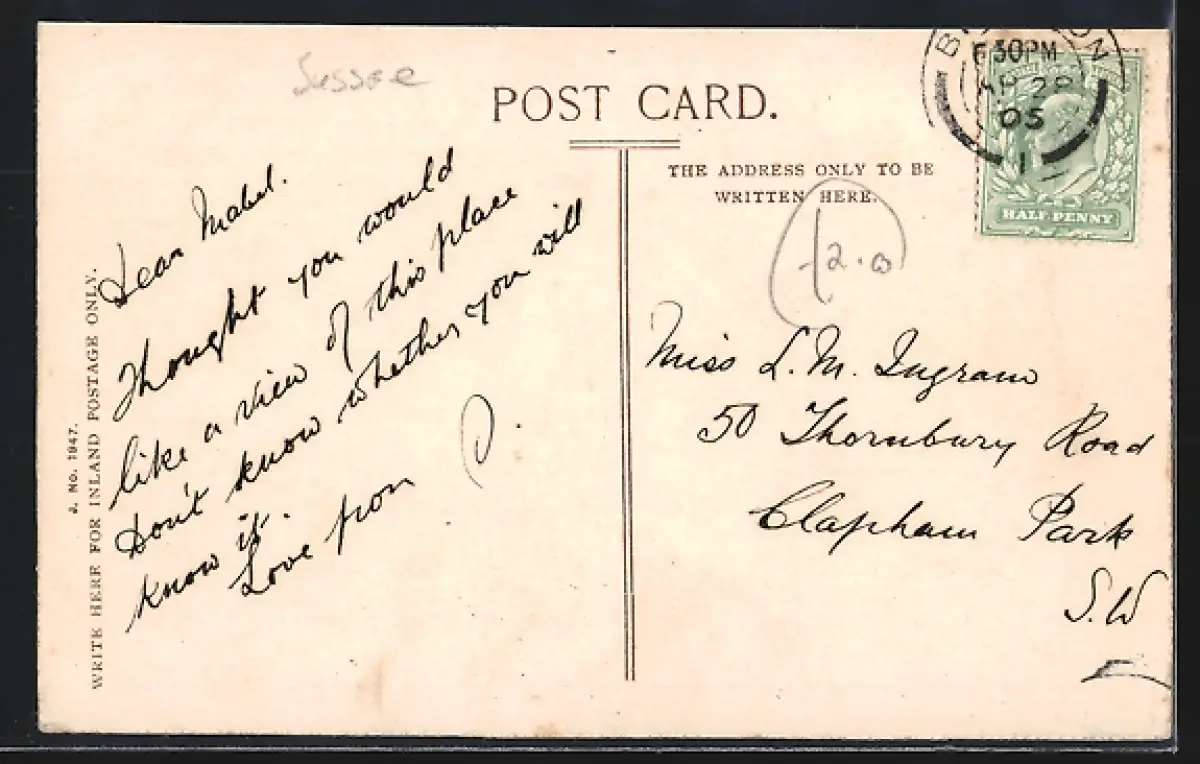 Sussex
POST CARD.
THE ADDRESS ONLY TO BE
WRITTEN HERE.
30PM
AP 28
05
1
HALF PENNY
J. No. 1947.
WRITE HERE FOR INLAND POSTAGE ONLY.
Dear Mabel.
Thought you would
like a view of this place
Don't know whether you will
know it.
Love from D.
Miss L. M. Ingram
50 Thornbury Road
Clapham Park
S.W